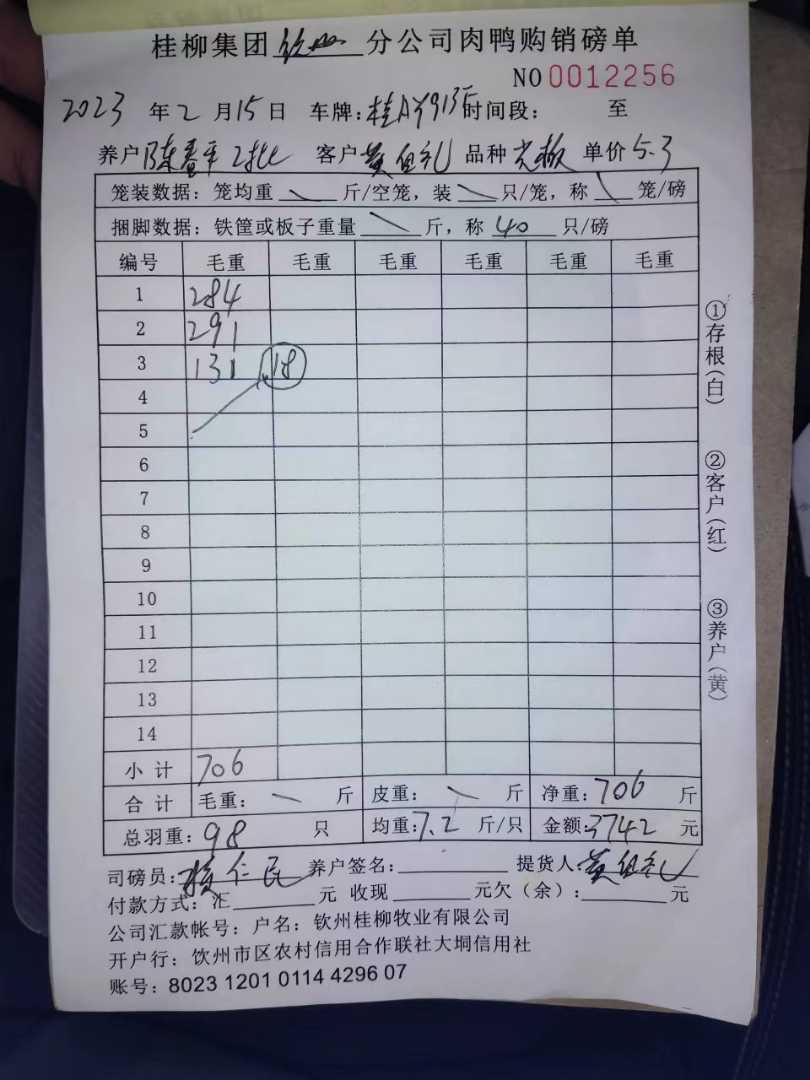 桂柳集团 钦州 分公司肉鸭购销磅单
NO 0012256
2023 年 2 月 15 日 车牌: 时间段: 至
养户 陈春平 2批 客户 黄 礼 品种 光板 单价 5.3
笼装数据: 笼均重 \ 斤/空笼, 装 \ 只/笼, 称 \ 笼/磅
捆脚数据: 铁筐或板子重量 \ 斤, 称 40 只/磅
编号 毛重 毛重 毛重 毛重 毛重 毛重
1 284
2 291
3 131 18
4
5
6
7
8
9
10
11
12
13
14
小计 706
合计 毛重: \ 斤 皮重: \ 斤 净重: 706 斤
总羽重: 98 只 均重: 7.2 斤/只 金额: 3742 元
司磅员: 仁民 养户签名: 提货人: 黄 礼
付款方式: 汇 元 收现 元欠(余): 元
公司汇款帐号: 户名: 钦州桂柳牧业有限公司
开户行: 饮州市区农村信用合作联社大垌信用社
账号: 8023 1201 0114 4296 07
①存根(白)
②客户(红)
③养户(黄)